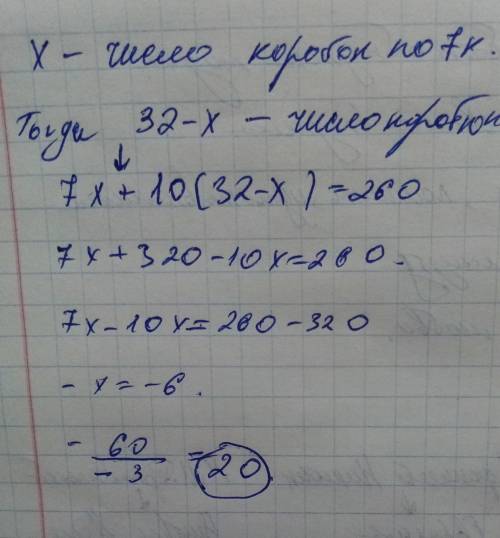 x – число коробок по 7к.
Тогда 32-x – число коробок
↓
7x + 10(32-x) = 260
7x + 320 - 10x = 260.
7x - 10x = 260 - 320
- x = -6.
- 60/-3 = 20